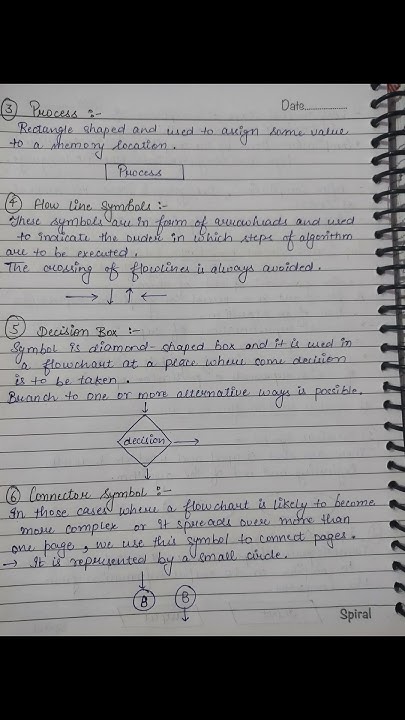 Date..................
③ Process :-
Rectangle shaped and used to assign some value
to a memory location.
Process
④ Flow line Symbols :-
These symbols are in form of arrowheads and used
to indicate the order in which steps of algorithm
are to be executed.
The crossing of flowlines is always avoided.
⑤ Decision Box :-
Symbol is diamond-shaped box and it is used in
a flowchart at a place where some decision
is to be taken.
Branch to one or more alternative ways is possible.
decision
⑥ Connector Symbol :-
In those cases where a flowchart is likely to become
more complex or it spreads over more than
one page, we use this symbol to connect pages.
→ It is represented by a small circle.
B B
Spiral